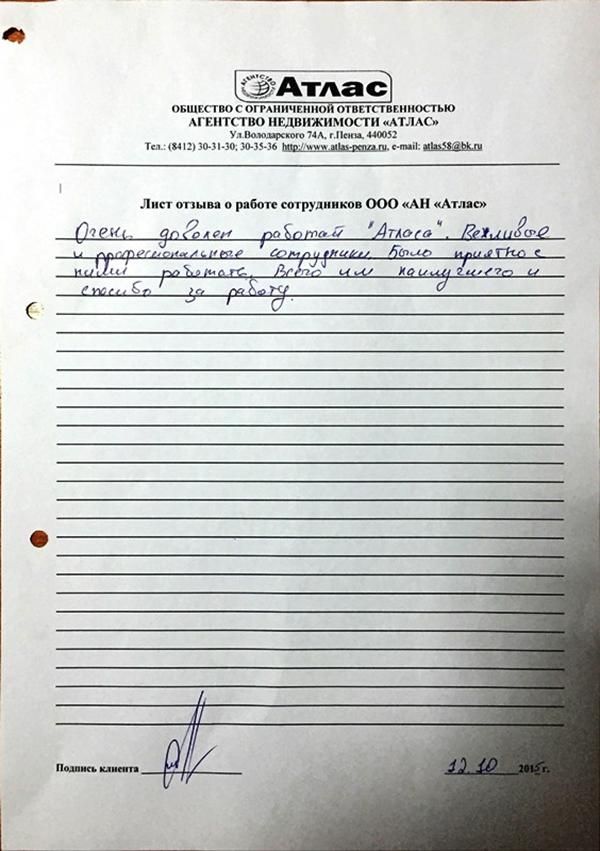 АГЕНТСТВО
Атлас
ОБЩЕСТВО С ОГРАНИЧЕННОЙ ОТВЕТСТВЕННОСТЬЮ
АГЕНТСТВО НЕДВИЖИМОСТИ «АТЛАС»
Ул.Володарского 74А, г.Пенза, 440052
Тел.: (8412) 30-31-30; 30-35-36 http://www.atlas-penza.ru, e-mail: atlas58@bk.ru
Лист отзыва о работе сотрудников ООО «АН «Атлас»
Очень доволен работай "Атласа". Вежливые
и профессиональные сотрудники. Было приятно с
ними работать. Всего им наилучшего и
спасибо за работу.
Подпись клиента
12.10 2015 г.